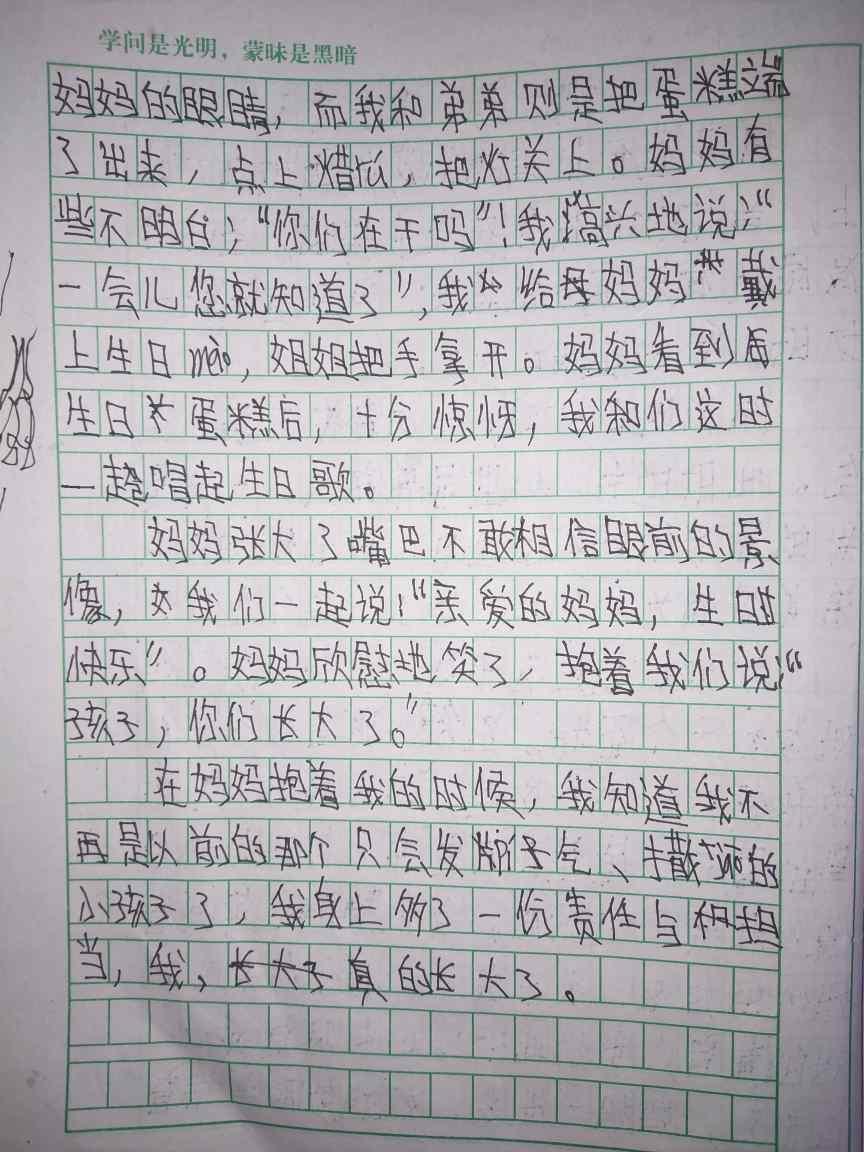 学问是光明，蒙昧是黑暗
妈妈的眼睛，而我和弟弟则是把蛋糕端
了出来，点上蜡，把灯关上。妈妈有
些不明白；“你们在干吗”！我高兴地说；“
一会儿您就知道了”，我给妈妈戴
上生日mào，姐姐把手拿开。妈妈看到
生日蛋糕后，十分惊讶，我和们这时
一起唱起生日歌。
妈妈张大了嘴巴不敢相信眼前的景
像，我们一起说！“亲爱的妈妈，生日
快乐”。妈妈欣慰地笑了，抱着我们说；“
孩子，你们长大了。”
在妈妈抱着我的时候，我知道我不
再是以前的那个只会发脾气、撒的
小孩子了，我身上够了一份责任与担
当，我，真的长大了。